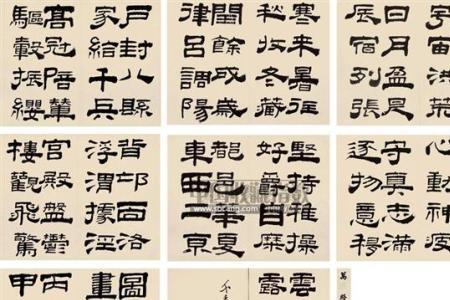 宇宙洪荒
日月盈昃
辰宿列張
寒來暑往
秋收冬藏
閏餘成歲
律呂調陽
戶封八縣
家給千兵
高冠陪輦
驅轂振纓
心動神疲
守真志滿
逐物意移
堅持雅操
好爵自縻
都邑華夏
東西二京
背邙面洛
浮渭據涇
宮殿盤鬱
樓觀飛驚
萬
雲
露
圖
畫
丙
甲